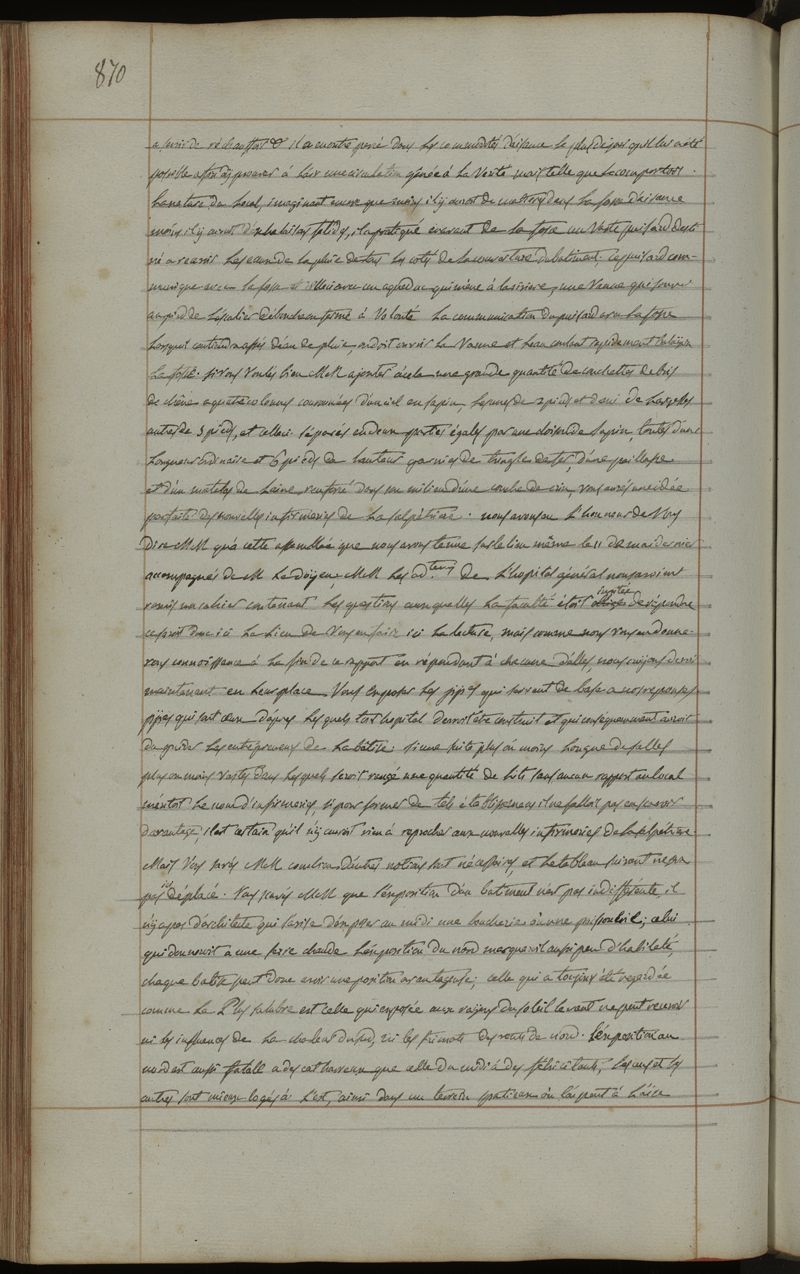 870
a servir de réchauffoir & il a en outre percé dans les commodités d'aisance le plus de jour qu'il lui a été
possible afin d'y procurer à l'air une circulation gênée à la vérité mais telle que le comportoit
la nature du local, imaginant encore que moins il y auroit de matières dans la fosse d'aisance
moins il y auroit d'exhalaisons fétides, il a pratiqué en avant de la fosse un vaste puisard desti-
né a reçevoir les eaux de la pluie de tous les cotés de la couverture du batiment. Ce puisard com-
munique avec la fosse et celle ci avec un aqueduc qui mène à la rivière, une vanne qui s'ouvre
au pied de l'escalier débouche ou ferme à volonté la communication du puisard avec la fosse
lorsqu'il contiendra assés d'eau de pluie on doit ouvrir la vanne et l'eau coulant rapidement nétoyera
la fosse. si vous voulés bien MM ajouter à cela une grande quantité de couchettes de bois
de chêne a quatre colonnes couronnées d'un ciel en sapin, les unes de 2 pieds et demi de large les
autres de 5 pieds, et celles ci séparées en deux parties égales par une cloison de sapin, toutes d'une
longueur ordinaire et 6 pieds de hauteur garnies de tringles de fer, d'une paillasse
et d'un matelas de laine renforcé dans son milieu d'une couche de crin, vous aurés une idée
parfaite des nouvelles infirmeries de la Salpêtrière. nous avons eu l'honneur de vous
dire MM qu'à cette assemblée que nous avons tenue sur le lieu même le 11 de mai dernier
accompagnés de M le doyen, MM les adteurs de l'hopital général nous avoient
remis un cahier contenant les questions auxquelles la faculté étoit invitée de répondre
ce seroit donc ici le lieu de vous en faire ici la lecture, mais comme nous vous en donne-
rons connoissance à la fin de ce rapport en répondant à chacune d'elles, nous croyons devoir
maintenant en leur place vous exposer les pjpes qui servent de base a nos réponses
pjpes qui sont ceux d'après lesquels tout hopital devroit être construit et qui conséquemment auroit
du guider les entrepreneurs de la bâtisse. si une suite plus ou moins longue de salles
plus ou moins vastes dans lesquels seroit rangé une quantité de lits sans aucun rapport au local
méritoit le nom d'infirmeries, si pour former de tels établissemens il ne falloit pas en savoir
davantage, il est certain qu'il n'y auroit rien à reprocher aux nouvelles infirmeries de la Salpêtrière
Mais vous savés MM combien d'autres notions sont nécessaires, et le tableau suivant ne sera
pas ici déplacé. vous savés MM que l'exposition d'un batiment n'est pas indifférente, il
n'y a pas d'architecte qui s'avise d'exposer au midi une boucherie ou une poissonerie; celui
qui donneroit a une serre chaude l'exposition du nord marqueroit aussi peu d'habileté,
chaque batisse peut donc avoir une position avantageuse; celle qui a toujours été regardée
comme la plus salubre est celle qui exposée aux rayons du soleil levant ne peut recevoir
ni les influences de la chaleur du sud, ni les frimats des vents de nord. L'exposition au
nord est aussi fatalle a des catharreux que celle du midi à des fébricitants, les uns et les
autres sont mieux logés à l'est, ainsi dans un terrein spatieux où l'on peut à l'aise